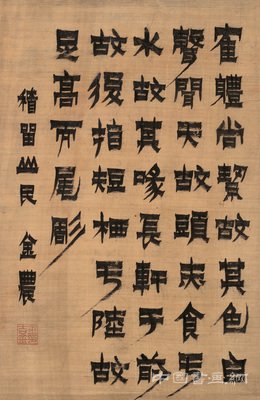 寉體尚絜故其色白
聲聞天故頭赤食于
水故其喙長軒于前
故後指短栖于陸故
足高而尾彫
稽留山民 金農
中國書畫網